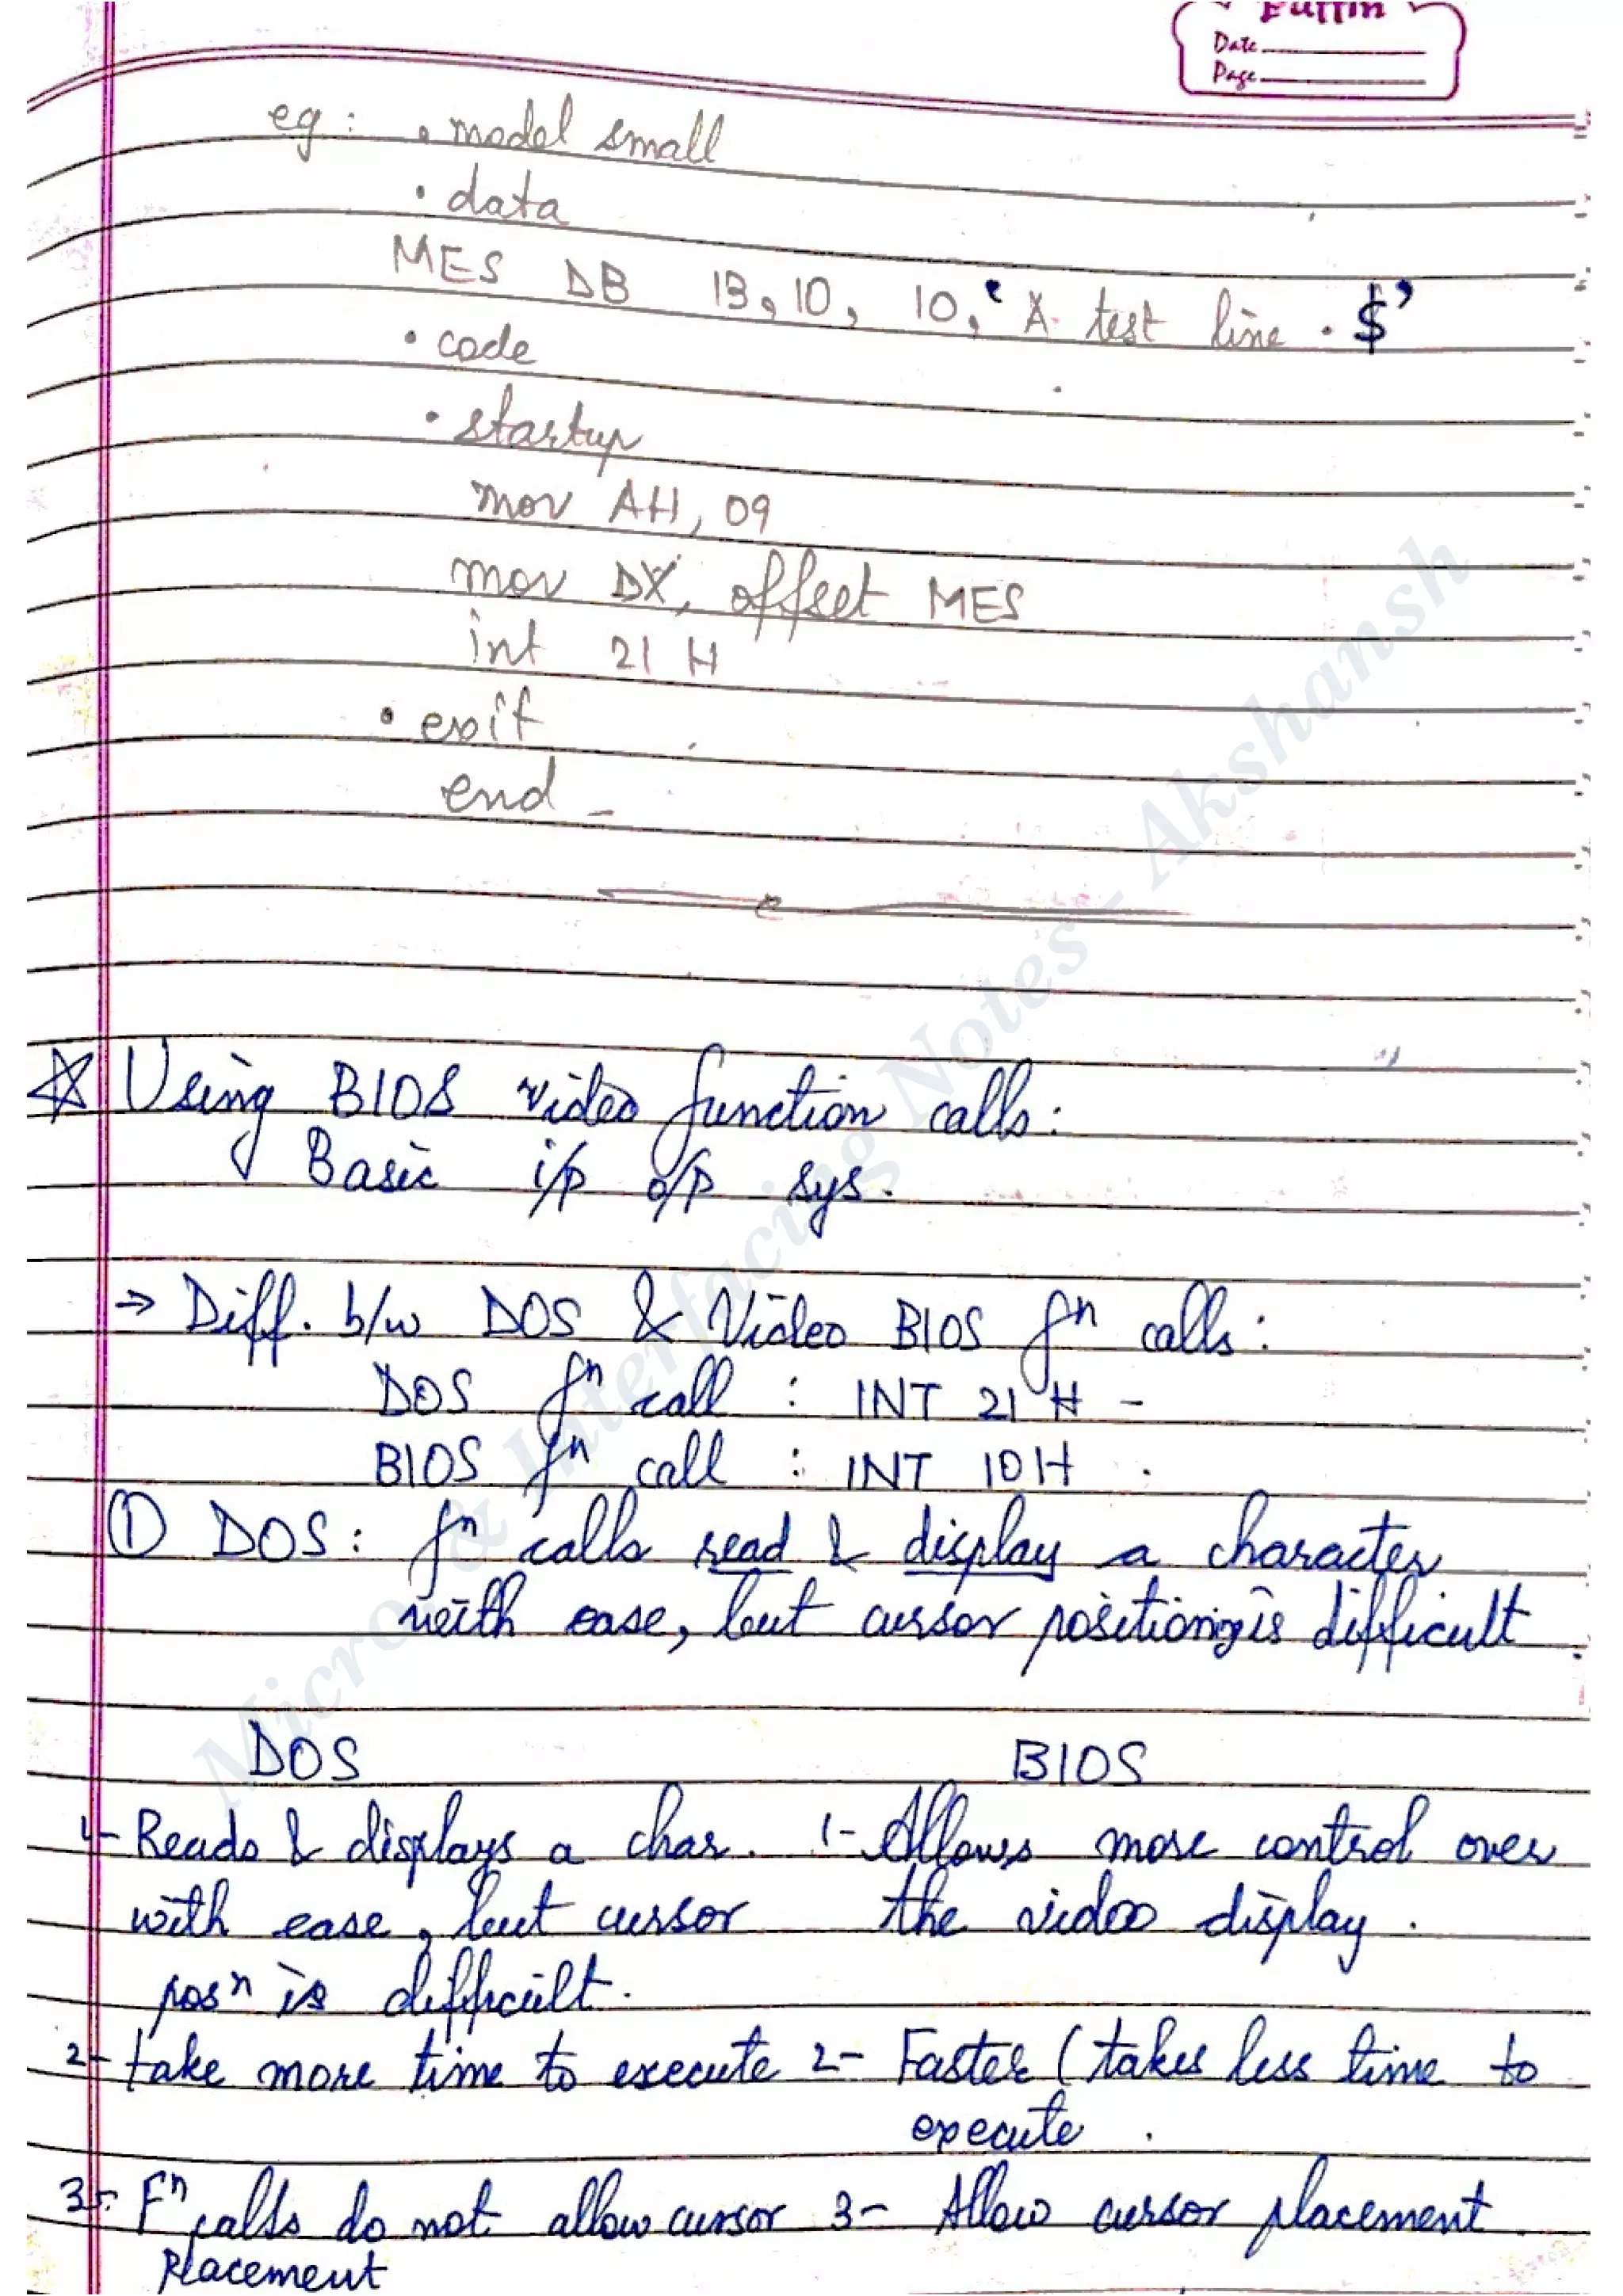 Puffin
Date
Page
eg : .model small
.data
MES DB 13, 10, 10, ‘A test line . $’
.code
.startup
mov AH, 09
mov DX, offset MES
int 21 H
.exit
end
☆ Using BIOS video function calls :
Basic i/p o/p sys.
→ Diff. b/w DOS & Video BIOS fⁿ calls :
DOS fⁿ call : INT 21 H -
BIOS fⁿ call : INT 10H .
① DOS : fⁿ calls read & display a character
with ease, but cursor positioning is difficult.
DOS BIOS
1- Reads & displays a char. 1- Allows more control over
with ease, but cursor the video display .
posⁿ is difficult.
2- take more time to execute 2- Faster (takes less time to
execute .
3- Fⁿ calls do not allow cursor 3- Allow cursor placement
placement
Micro & Interfacing Notes- Akshansh